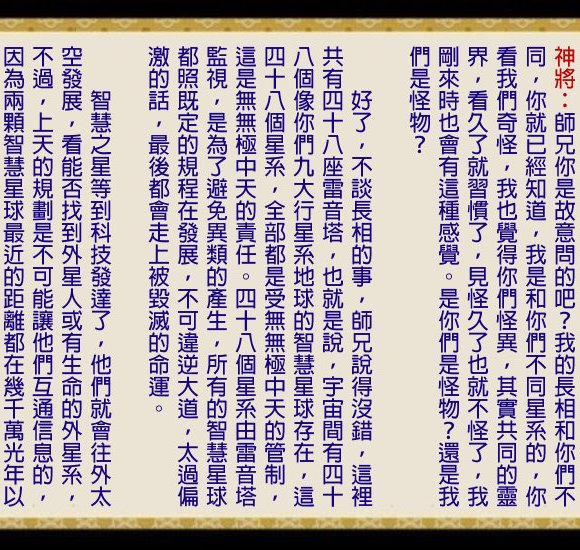 神將：師兄你是故意問的吧？我的長相和你們不
同，你就已經知道，我是和你們不同星系的，你
看我們奇怪，我也覺得你們怪異，其實共同的靈
界，看久了就習慣了，見怪久了也就不怪了，我
剛來時也會有這種感覺。是你們是怪物？還是我
們是怪物？
好了，不談長相的事，師兄說得沒錯，這裡
共有四十八座雷音塔，也就是說，宇宙間有四十
八個像你們九大行星系地球的智慧星球存在，這
四十八個星系，全部都是受無無極中天的管制，
這是無無極中天的責任。四十八個星系由雷音塔
監視，是為了避免異類的產生，所有的智慧星球
都照既定的規程在發展，不可違逆大道，太過偏
激的話，最後都會走上被毀滅的命運。
智慧之星等到科技發達了，他們就會往外太
空發展，看能否找到外星人或有生命的外星系，
不過，上天的規劃是不可能讓他們互通信息的，
因為兩顆智慧星球最近的距離都在幾千萬光年以